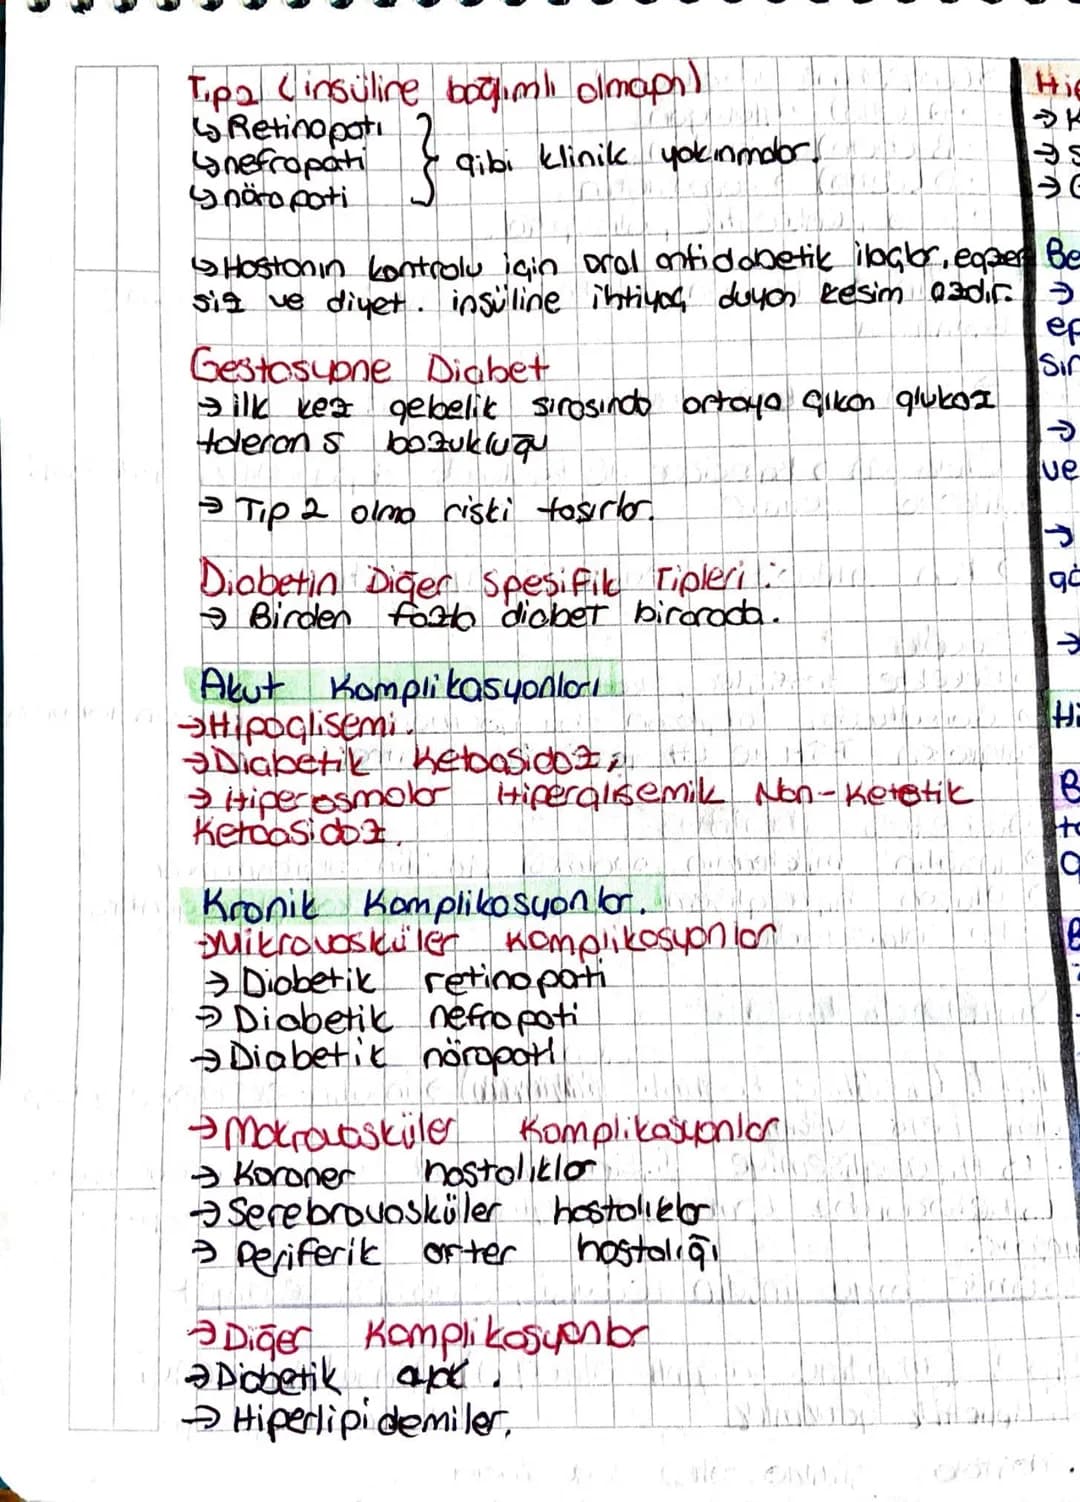 Tip2 (insüline bağımlı olmayan)
↳ Retinopati
↳ nefropati } gibi klinik yakınmalar.
↳ nöropati
↳ Hastanın kontrolu için oral antidabetik ilaçlar, egzer
siz ve diyet. insüline ihtiyaç duyan kesim azdır.
Gestasyone Diabet
→ ilk kez gebelik sırasında ortaya çıkan glukoz
tolerans bozukluğu
→ Tip 2 olma riski taşırlar.
Diabetin Diğer Spesifik Tipleri :
→ Birden fazla diabet birarada.
Akut Komplikasyonları
→ Hipoglisemi.
→ Diabetik Ketoasidoz,
→ Hiperosmolar Hiperglisemik Non-Ketotik
Ketoasidoz.
Kronik Komplikasyonlar.
→ Mikrovasküler Komplikasyonlar
→ Diabetik retinopati
→ Diabetik nefropati
→ Diabetik nöropati
→ Makrovasküler Komplikasyonlar
→ Koroner hastalıklar
→ Serebrovasküler hastalıklar
→ Periferik arter hastalığı
→ Diğer Komplikasyonlar
→ Diabetik ayak.
→ Hiperlipidemiler.